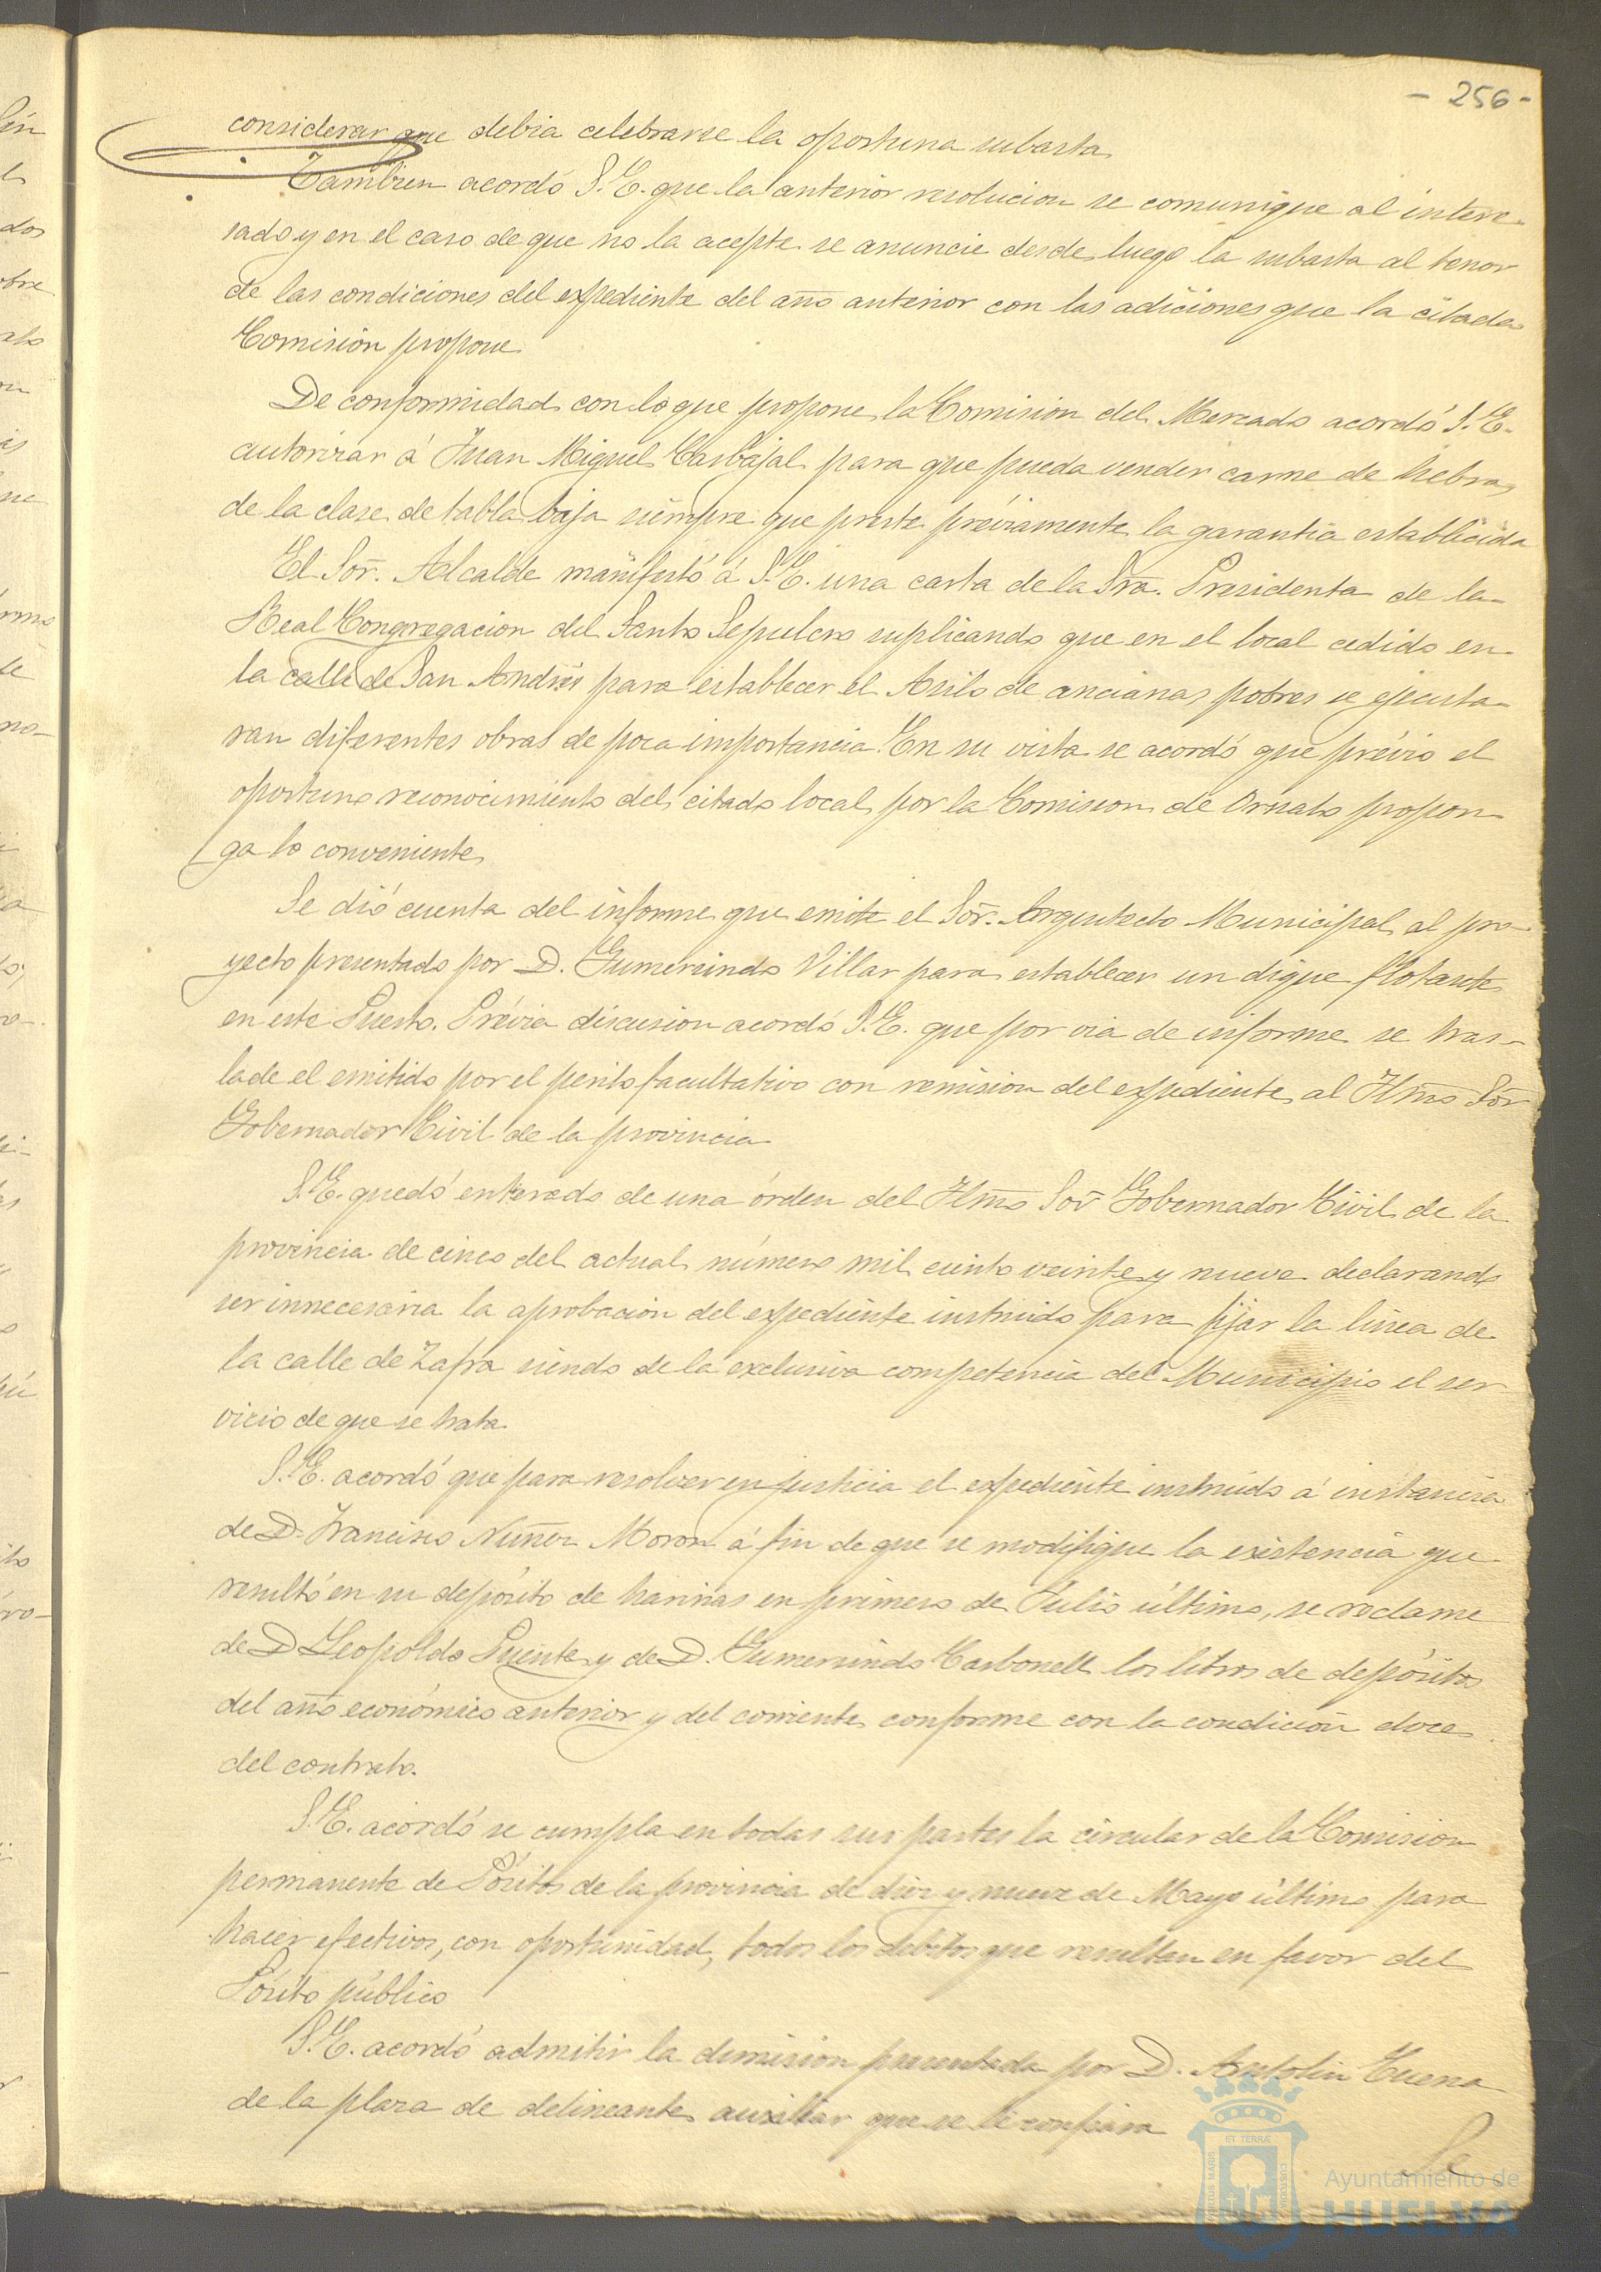 - 256 -
considerar que debia celebrarse la oportuna subasta
Tambien acordó S.E. que la anterior resolucion se comunique al intere-
sado y en el caso de que no la acepte se anuncie desde luego la subasta al tenor
de las condiciones del expediente del año anterior con las adiciones que la citada
Comisión propone
De conformidad con lo que propone la Comision del Mercado acordó S.E.
autorizar á Juan Miguel Carbajal para que pueda vender carne de hebra
de la clase de tabla baja siempre que preste préviamente la garantia establecida
El Sor. Alcalde manifestó á S.E. una carta de la Sra. Presidenta de la
Real Congregacion del Santo Sepulcro suplicando que en el local cedido en
la calle de San Andrés para establecer el Asilo de ancianas pobres se ejecuta-
ran diferentes obras de poca importancia. En su vista se acordó que prévio el
oportuno reconocimiento del citado local por la Comision de Ornato propon-
ga lo conveniente
Se dió cuenta del informe que emite el Sor. Arquitecto Municipal al pro-
yecto presentado por D. Gumersindo Villar para establecer un dique flotante
en este Puerto. Prévia discusion acordó S.E. que por via de informe se tras-
lade el emitido por el perito facultativo con remision del expediente al Iltmo Sor
Gobernador Civil de la provincia
S.E. quedó enterado de una órden del Iltmo Sor Gobernador Civil de la
provincia de cinco del actual número mil ciento veinte y nueve declarando
ser innecesaria la aprobacion del expediente instruido para fijar la linea de
la calle de Zafra siendo de la exclusiva competencia del Municipio el ser
vicio de que se trata
S.E. acordó que para resolver en justicia el expediente instruido á instancia
de D. Francisco Nuñez Moron á fin de que se modifique la existencia que
resultó en su depósito de harinas en primero de Julio último, se reclame
de D Leopoldo Puente y de D. Gumersindo Carbonell los libros de depósitos
del año económico anterior y del corriente conforme con la condición doce
del contrato.
S.E. acordó se cumpla en todas sus partes la circular de la Comision
permanente de Pósitos de la provincia de diez y nueve de Mayo último para
hacer efectivos, con oportunidad, todos los debitos que resultan en favor del
Pósito público
S.E. acordó admitir la dimision presentada por D. Antolin Cuena
de la plaza de delineante auxiliar que se le confiara
Se
Ayuntamiento de
HUELVA